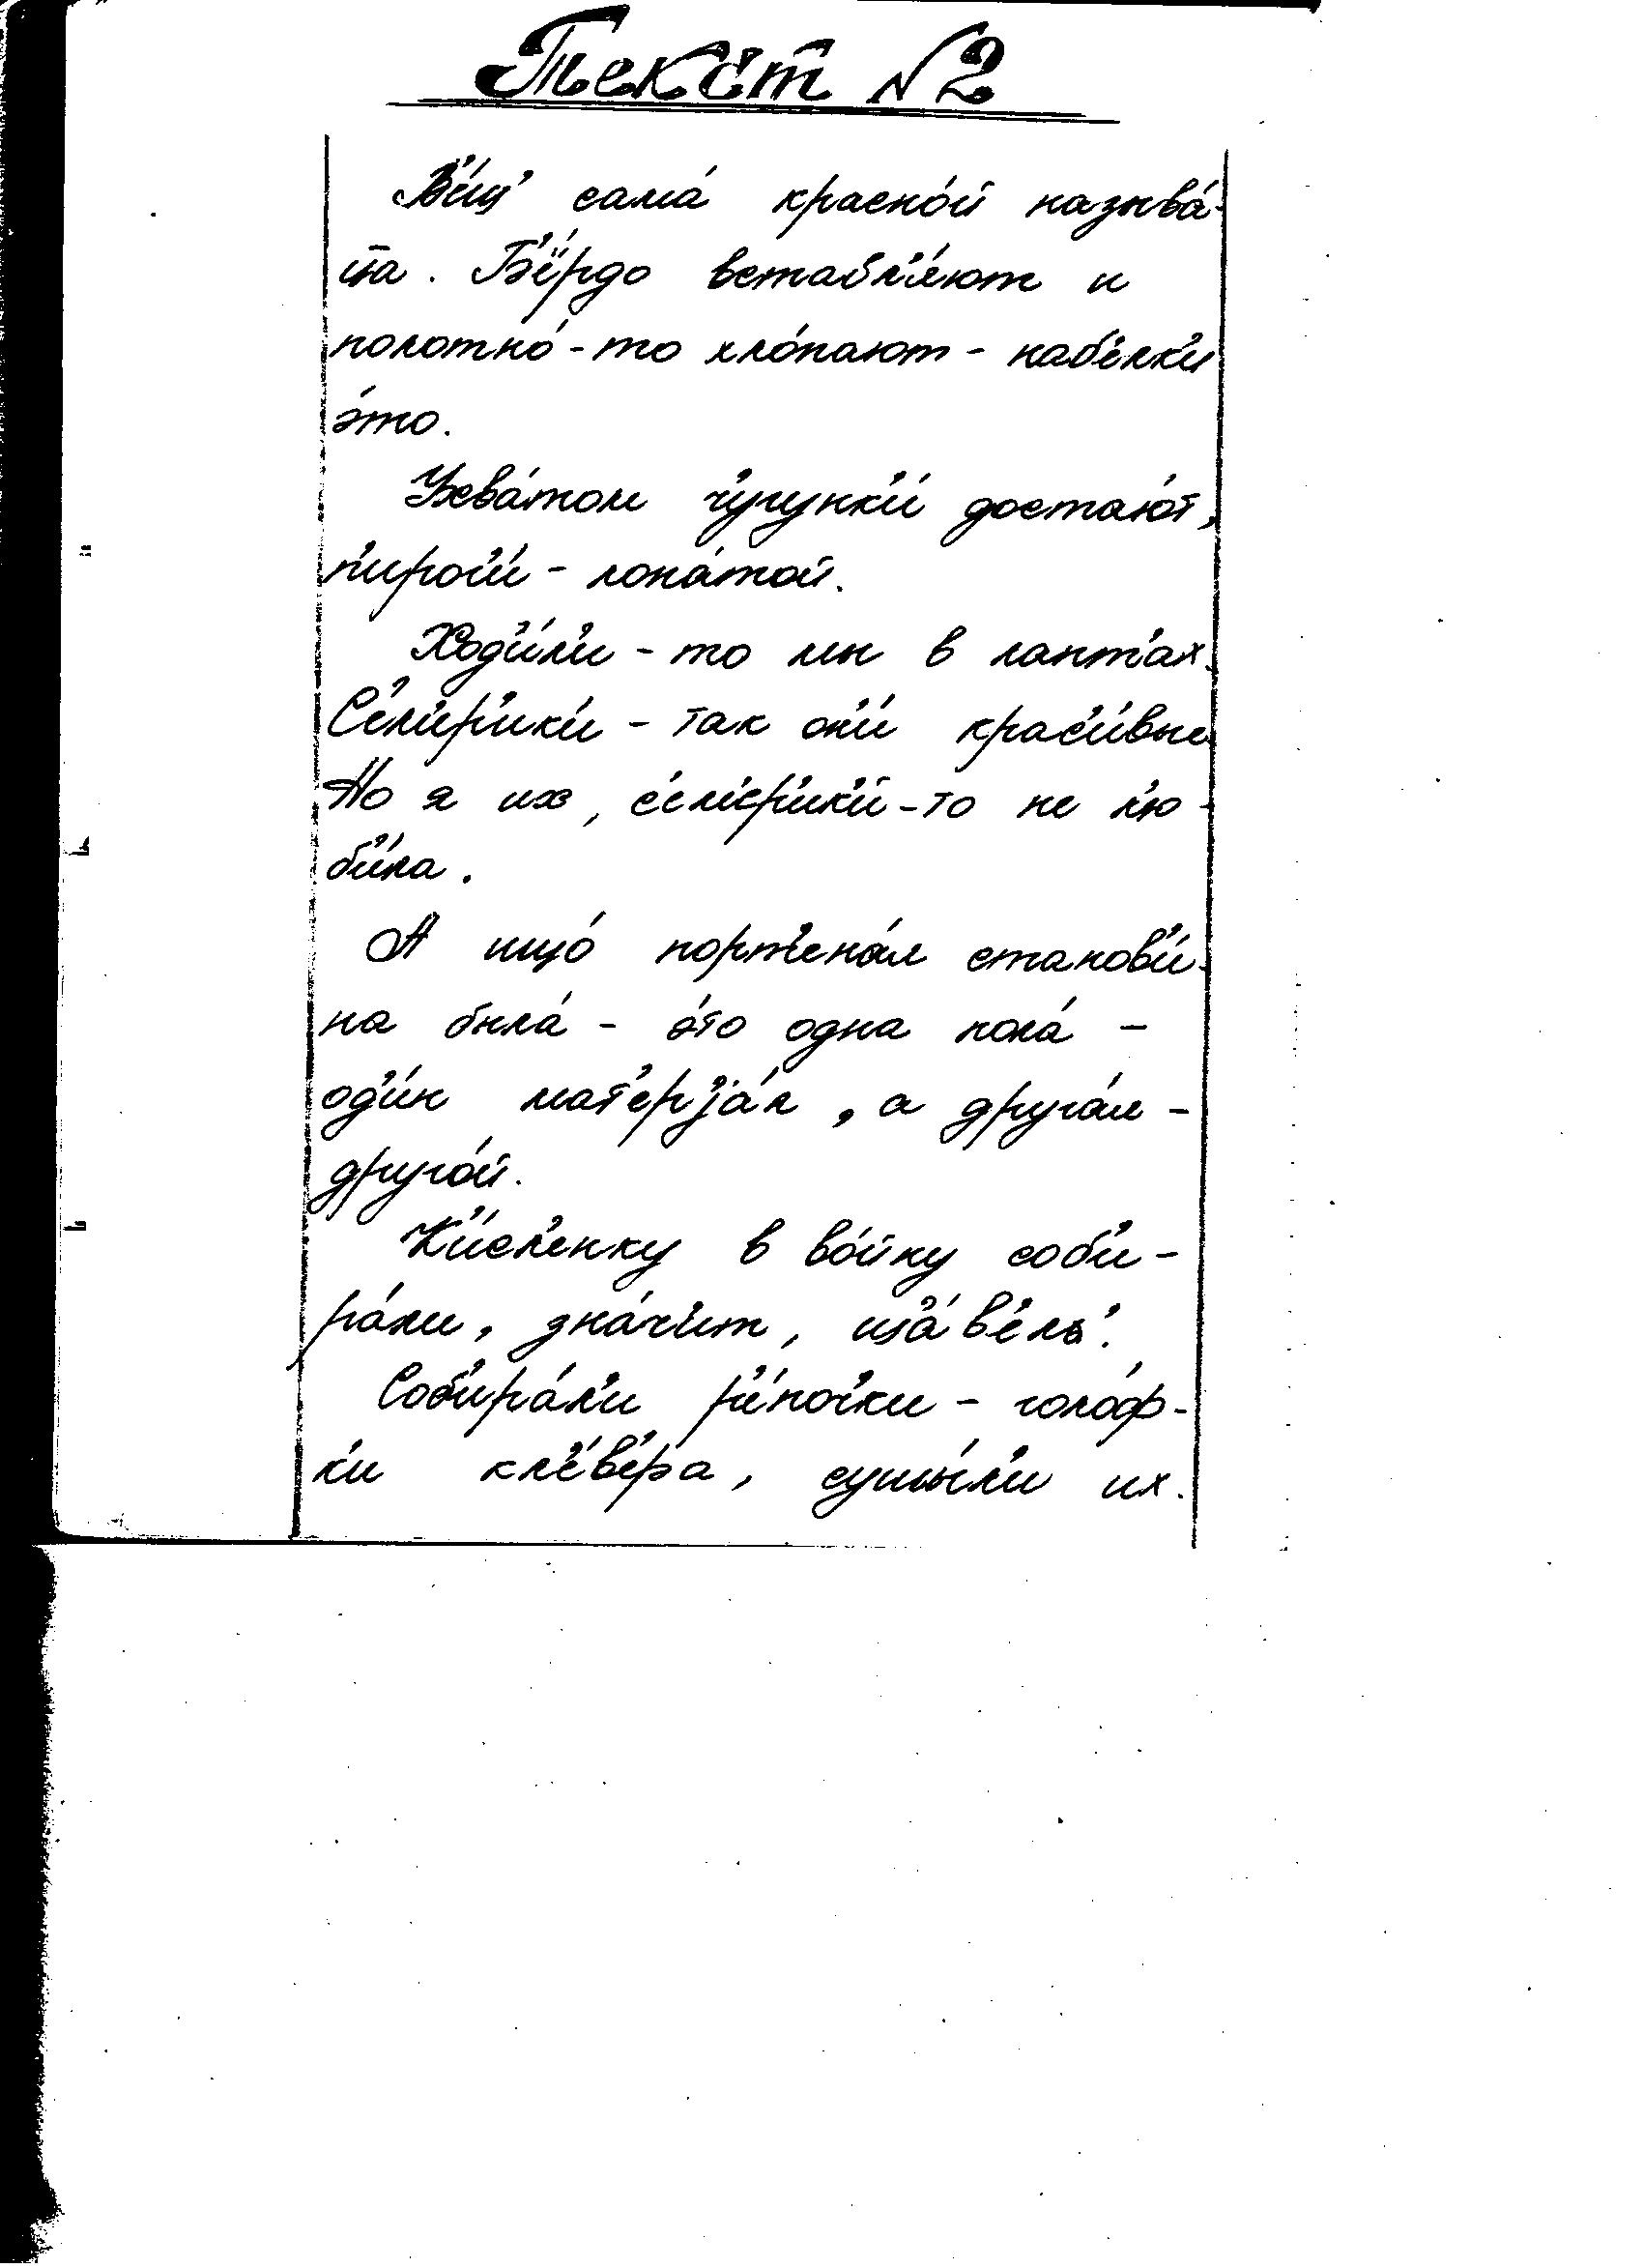 Текст №2
В'е́щ' сама́ красно́й называ́-
ц̄а. Б'ё́рдо вставл'а́ют и
полотно́-то хло́пают - наб'е́лк'и
э́то.
Ухва́том ч'угунк'и́ достаю́т,
п'ирог'и́ - лопа́той.
Ход'и́л'и - то мы в лапт'ах.
С'ем'ир'ик'и́ - так он'и́ крас'и́вые
Но я их, с'ем'ер'ик'и́-то не л'ю-
б'и́ла.
А ищо́ порт'ена́я станов'и́-
на была́ - э́то одна пола́ -
од'и́н мат'ер'jа́л, а друга́я -
друго́й.
К'и́сл'енку в во́йну соб'и-
ра́ли, зна́ч'ит, ща́в'ел'.
Соб'ира́л'и р'е́поч'ки - голо́ф-
к'и кл'е́в'ера, сушы́л'и их.